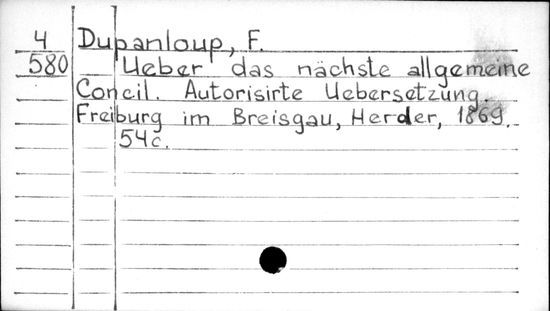 4 Dupanloup, F.
580 Ueber das nächste allgemeine
Concil. Autorisirte Uebersetzung.
Freiburg im Breisgau, Herder, 1869.
54c.